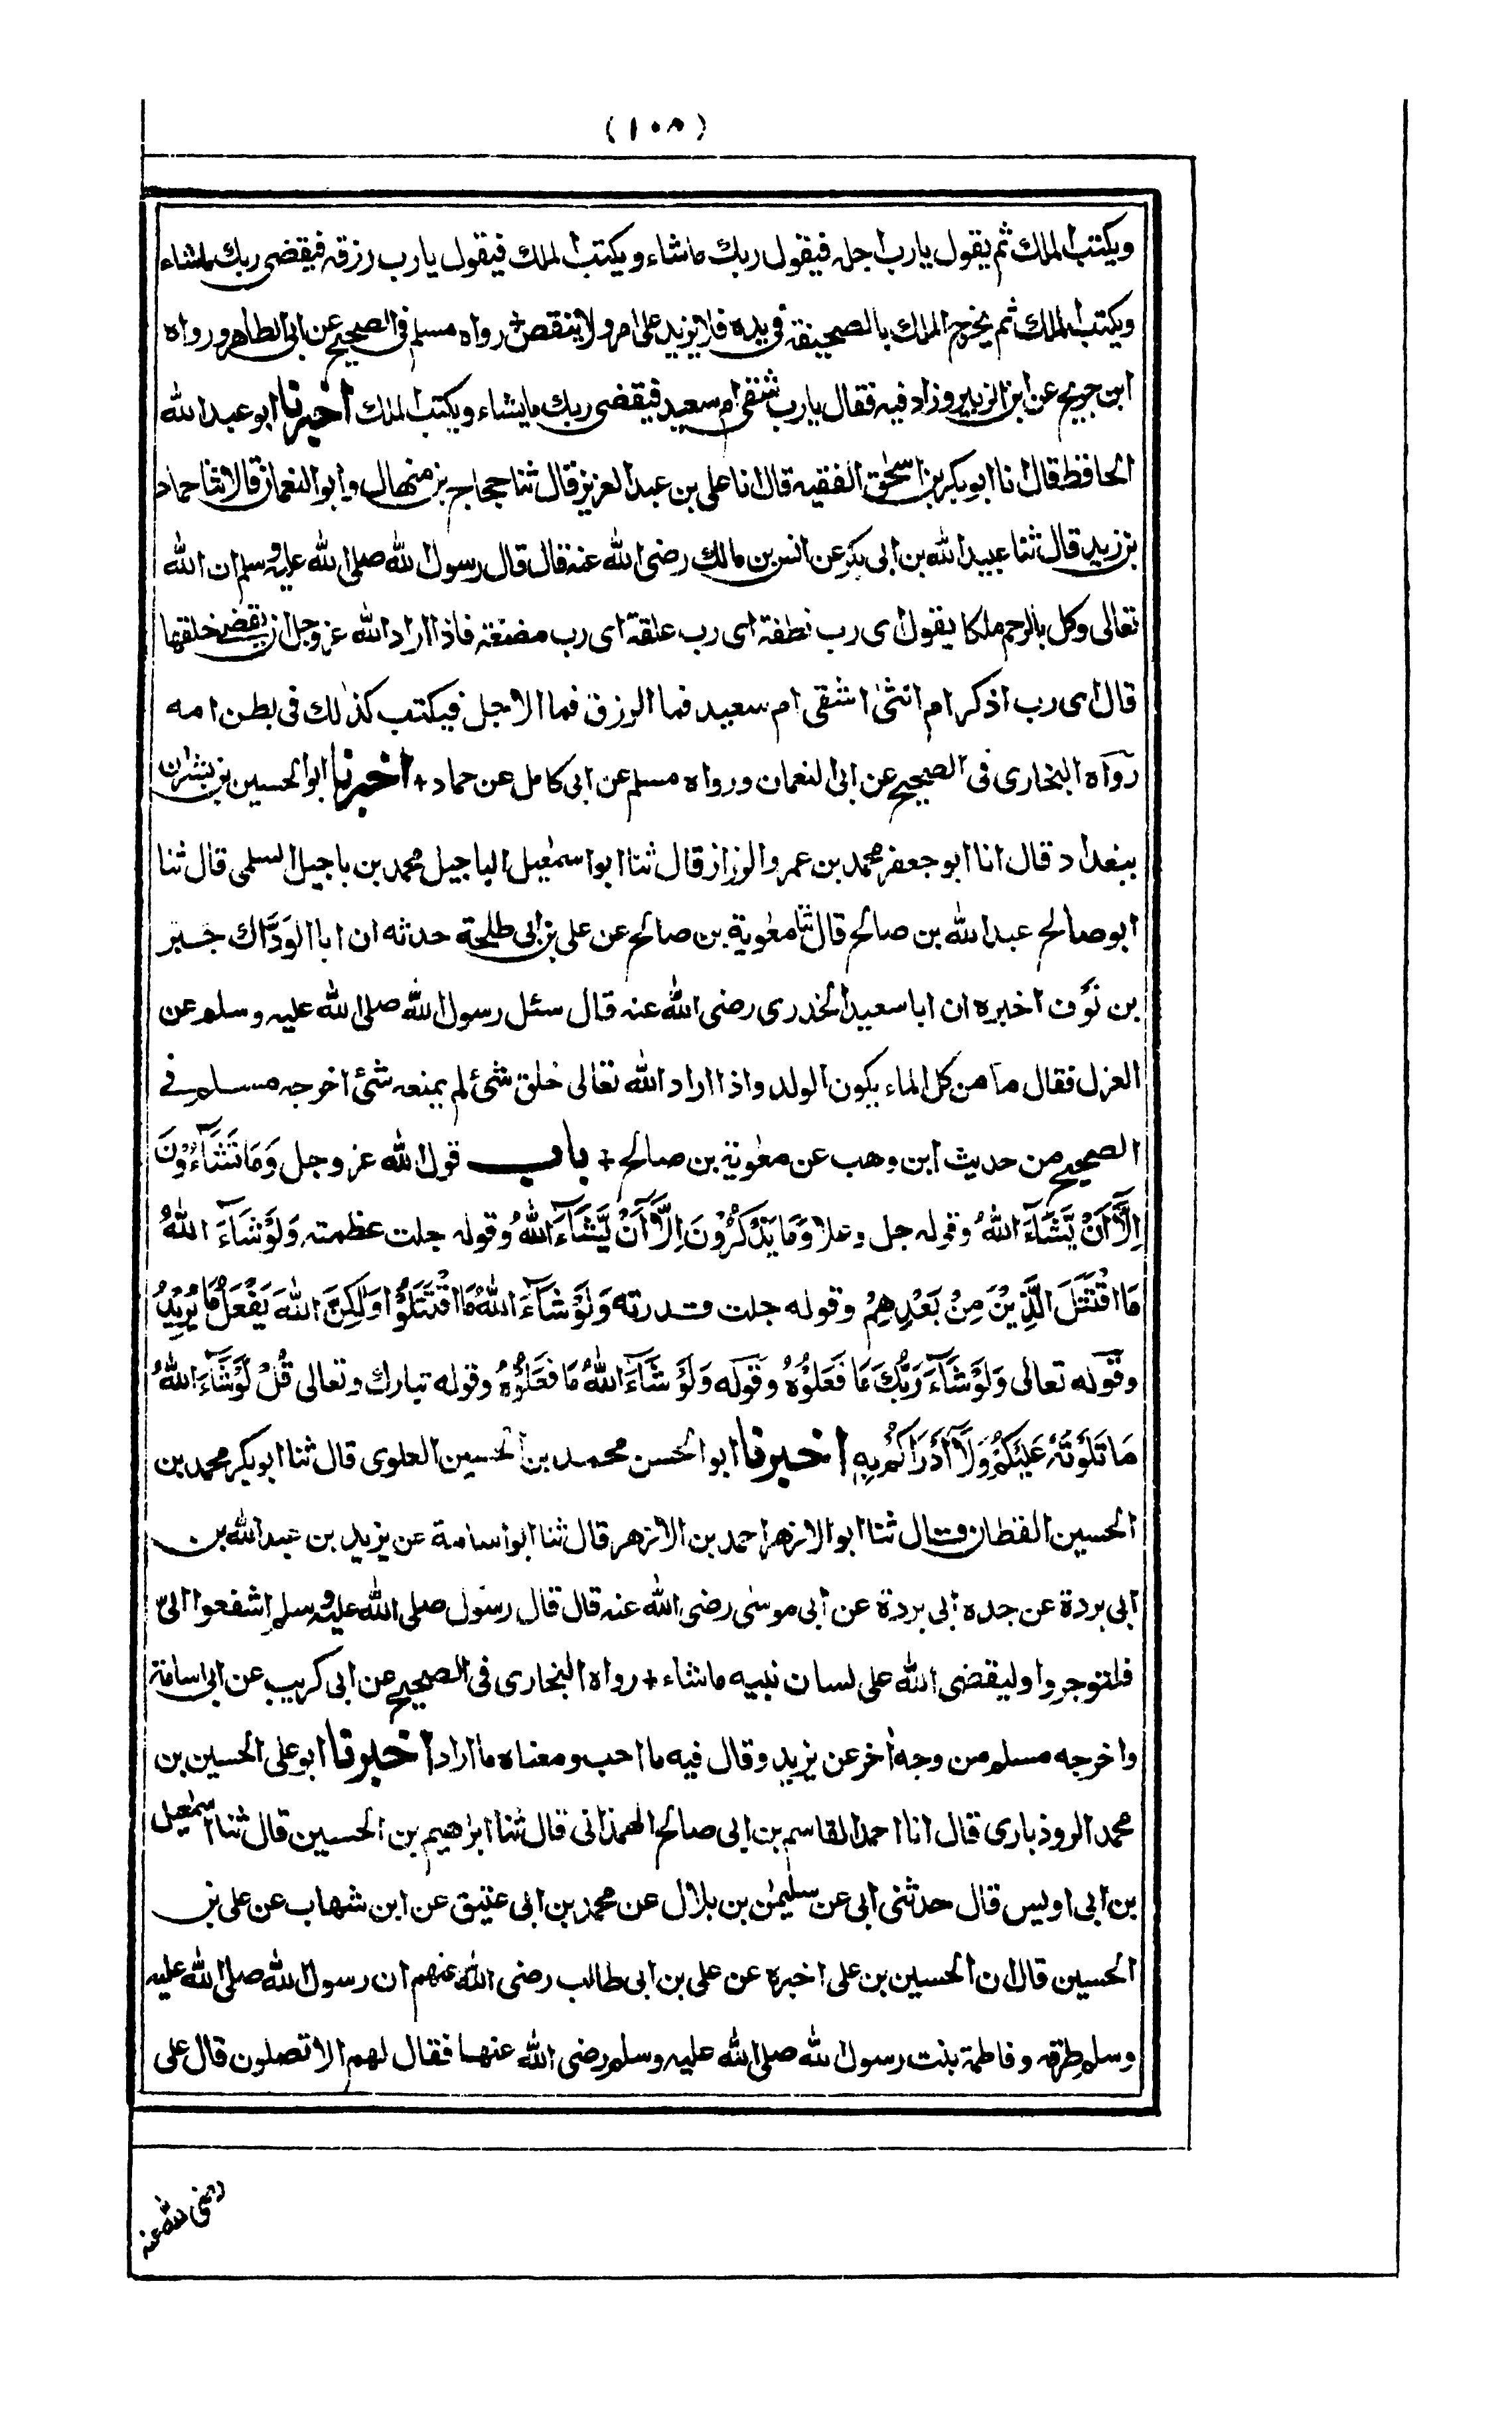 (١٠٨)
ويكتب الملك ثم يقول يارب اجله فيقول ربك ماشاء ويكتب الملك فيقول يارب رزقه فيقضى ربك ماشاء
ويكتب الملك ثم يخرج الملك بالصحيفة فى يده فلا يزيد على امر ولا ينقص + رواه مسلم فى الصحيح عن ابى الطاهر ورواه
ابن جريج عن ابى الزبير وزاد فيه فقال يارب شقى ام سعيد فيقضى ربك مايشاء ويكتب الملك اخبرنا ابو عبد الله
الحافظ قال انا ابو بكر بن اسحٰق الفقيه قال انا على بن عبد العزيز قال ثنا حجاج بن منهال وابو النعمان قالا ثنا حماد
بن زيد قال ثنا عبيد الله بن ابى بكر عن انس بن مالك رضى الله عنه قال قال رسول الله صلى الله عليه وسلم ان الله
تعالى وكل بالرحم ملكا يقول اى رب نطفة اى رب علقة اى رب مضغة فاذا اراد الله عز وجل ان يقضى خلقها
قال اى رب اذكر ام انثىٰ اشقى ام سعيد فما الرزق فما الاجل فيكتب كذٰلك فى بطن امه
رواه البخارى فى الصحيح عن ابى النعمان ورواه مسلم عن ابى كامل عن حماد + اخبرنا ابو الحسين بن بشران
ببغداد قال انا ابو جعفر محمد بن عمرو الرزاز قال ثنا ابو اسمٰعيل الباجيل محمد بن باجيل السلمى قال ثنا
ابو صالح عبد الله بن صالح قال ثنا معٰوية بن صالح عن على بن ابى طلحة حدثه ان ابا الوَدَّاك جبر
بن نَوف اخبره ان ابا سعيد الخدرى رضى الله عنه قال سئل رسول الله صلى الله عليه وسلم عن
العزل فقال ما من كل الماء يكون الولد واذا اراد الله تعالى خلق شئ لم يمنعه شئ اخرجه مسلم فى
الصحيح من حديث ابن وهب عن معٰوية بن صالح + باب قول الله عز وجل وَمَا تَشَآءُوْنَ
اِلَّآ اَنْ يَّشَآءَ اللهُ وقوله جل وعلا وَمَا يَذْكُرُوْنَ اِلَّآ اَنْ يَّشَآءَ اللهُ وقوله جلت عظمته وَلَوْ شَآءَ اللهُ
مَا اقْتَتَلَ الَّذِيْنَ مِنْ بَعْدِهِمْ وقوله جلت قدرته وَلَوْ شَآءَ اللهُ مَا اقْتَتَلُوْا وَلٰكِنَّ اللهَ يَفْعَلُ مَا يُرِيْدُ
وقوله تعالى وَلَوْ شَآءَ رَبُّكَ مَا فَعَلُوْهُ وقوله وَلَوْ شَآءَ اللهُ مَا فَعَلُوْهُ وقوله تبارك وتعالى قُلْ لَوْ شَآءَ اللهُ
مَا تَلَوْتُهٗ عَلَيْكُمْ وَلَآ اَدْرَاكُمْ بِهٖ اخبرنا ابو الحسن محمد بن الحسين العلوى قال ثنا ابو بكر محمد بن
الحسين القطان قال ثنا ابو الازهر احمد بن الازهر قال ثنا ابو اسامة عن يزيد بن عبد الله بن
ابى بردة عن جده ابى بردة عن ابى موسٰى رضى الله عنه قال قال رسول صلى الله عليه وسلم اشفعوا الىّ
فلتوجروا وليقضى الله على لسان نبيه ماشاء + رواه البخارى فى الصحيح عن ابى كريب عن ابى اسامة
واخرجه مسلم من وجه اٰخر عن يزيد وقال فيه ما احب ومعناه ما اراد اخبرنا ابو على الحسين بن
محمد الروذبارى قال انا احمد القاسم بن ابى صالح الهمذانى قال ثنا ابراهيم بن الحسين قال ثنا اسمٰعيل
بن ابى اويس قال حدثنى ابى عن سليمٰن بن بلال عن محمد بن ابى عتيق عن ابن شهاب عن على بن
الحسين قال ان الحسين بن على اخبره عن على بن ابى طالب رضى الله عنهم ان رسول الله صلى الله عليه
وسلم طرقه وفاطمة بنت رسول الله صلى الله عليه وسلم رضى الله عنها فقال لهم الا تصلون قال على
رضى الله عنه